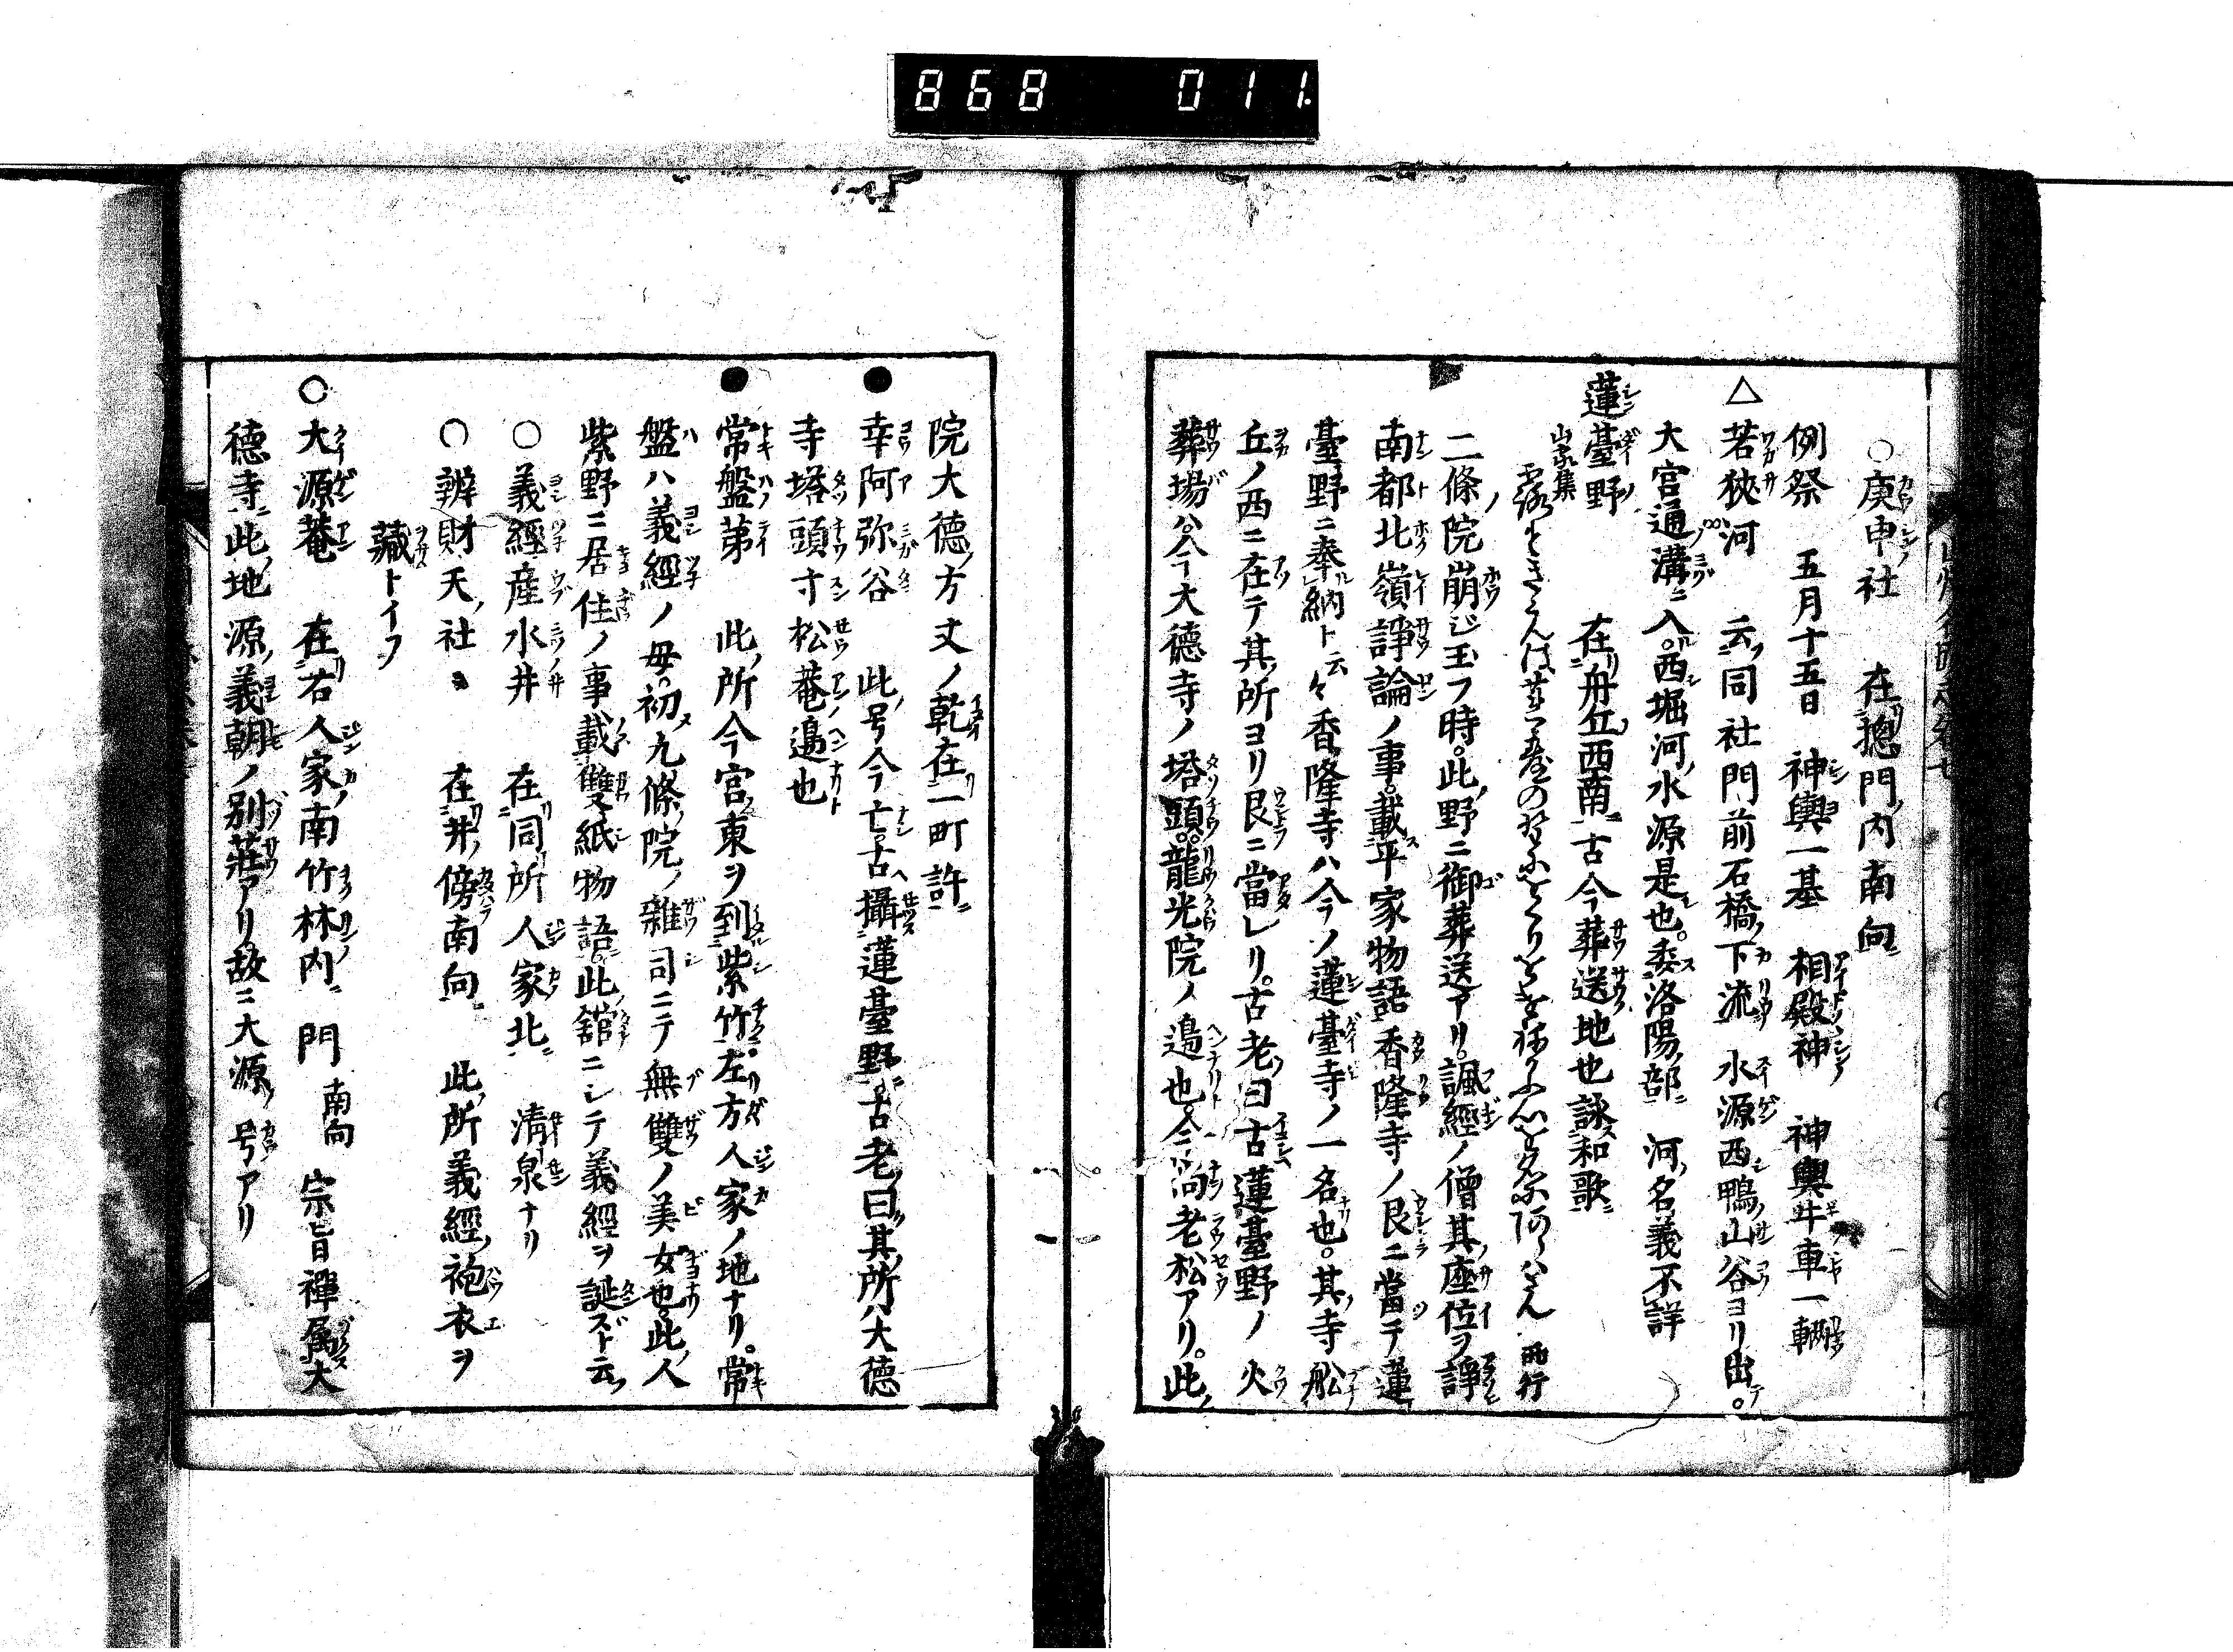 868 011
○庚申社 在惣門内南向
例祭 五月十五日 神輿一基 相殿神 神輿牛車一輛
△若狹河 云同社門前石橋下流 水源西鴨山谷ヨリ出。
大宮通溝ニ入。西堀河水源是也。委洛陽部 河名義不詳
蓮臺野 在舟丘西南 古今葬送地也詠和歌
山家集
西行
二條院崩ジ玉フ時。此野ニ御葬送アリ。諷經ノ僧其座位ヲ諍
南都北嶺諍論ノ事。載平家物語 香隆寺ノ艮ニ當テ蓮
臺野ニ奉納ト云々香隆寺ハ今ノ蓮臺寺ノ一名也。其寺舩
丘ノ西ニ在テ其所ヨリ艮ニ當レリ。古老曰古蓮臺野ノ火
葬場ハ今大德寺ノ塔頭。龍光院ノ邉也。今尚老松アリ。此
院大德方丈ノ乾在一町許
●幸阿弥谷 此号今亡。古攝蓮臺野。古老曰其所ハ大德
寺塔頭寸松菴邉也
●常盤第 此所今宮東ヲ到紫竹。左方人家ノ地ナリ。常
盤ハ義經ノ母。初九條院ノ雜司ニテ無雙ノ美女也。此人
紫野ニ居住ノ事載雙紙物語。此舘ニシテ義經ヲ誕ズト云
○義經産水井 在同所人家北 清泉ナリ
○辨財天社 在井傍南向 此所義經袍衣ヲ
藏トイフ
○大源菴 在右人家南竹林内 門南向 宗旨禪属大
德寺此地源義朝ノ別莊アリ故ニ大源号アリ